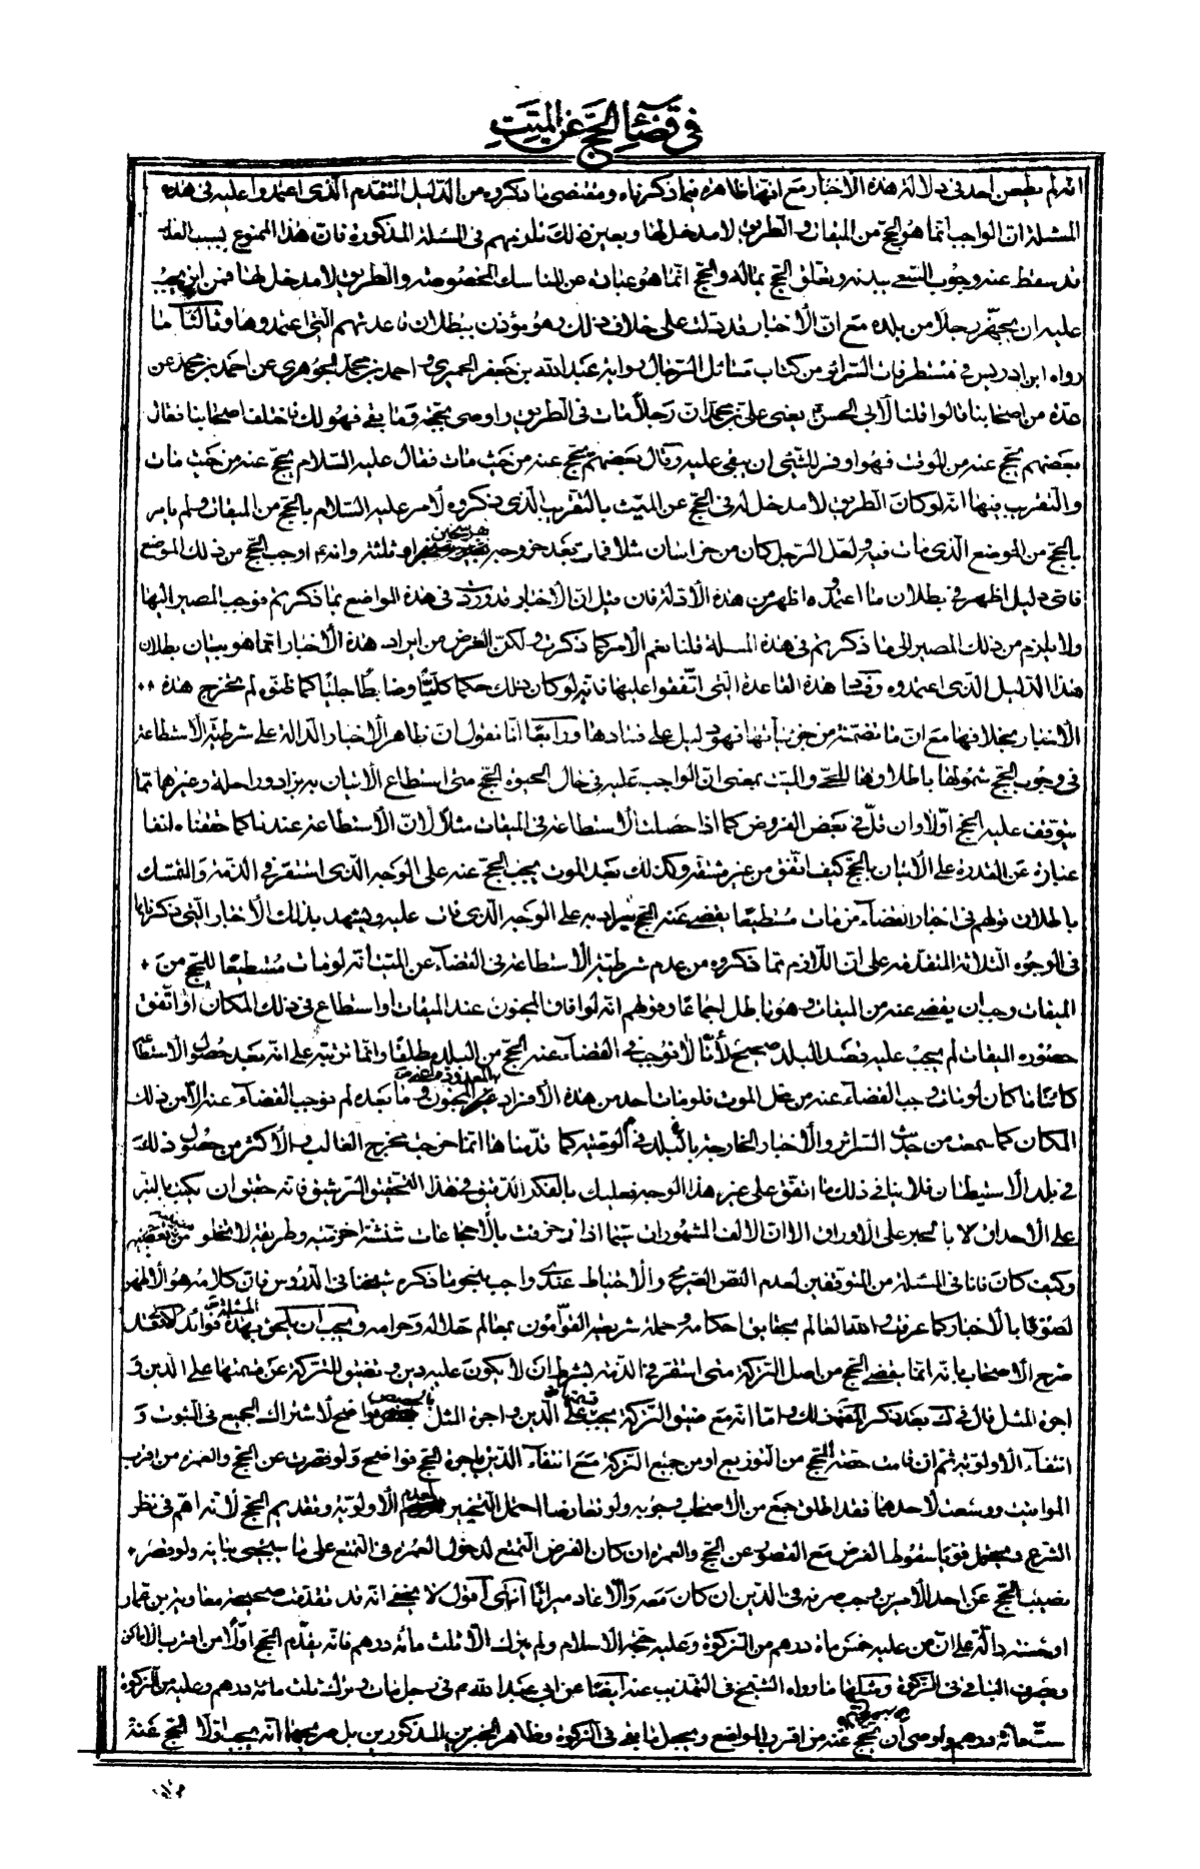 في قضاء الحج عن الميت
انه لم يطعن احد في دلالة هذه الأخبار مع انها ظاهرة فيما ذكرناه ومقتضى ما ذكروه من الدليل المتقدم الذي اعتمدوا عليه في هذه
المسئلة ان الواجب انما هو الحج من الميقات والطريق لا مدخل لها وبعين ذلك نلزمهم في المسئلة المذكورة فان هذا الممنوع بسبب العذر
قد سقط عنه وجوب السعي ببدنه وتعلق الحج بماله والحج انما هو عبارة عن المناسك المخصوصة والطريق لا مدخل لها فمن اين يجب
عليه ان يجهز رجلا من بلده مع ان الأخبار قد دلت على خلاف ذلك وهو مؤذن ببطلان قاعدتهم التي اعتمدوها وثالثا ما
رواه ابن ادريس في مستطرفات السرائر من كتاب مسائل الرجال رواية عبد الله بن جعفر الحميري و احمد بن محمد الجوهري عن احمد بن محمد عن
عدة من اصحابنا قالوا قلنا لأبي الحسن يعني علي بن محمد ان رجلا مات في الطريق واوصى بحجة وما بقي فهو لك فاختلف اصحابنا فقال
بعضهم يحج عنه من الوقت فهو اوفر للشيء ان يبقى عليه وقال بعضهم يحج عنه من حيث مات فقال عليه السلام يحج عنه من حيث مات
والتقريب فيها انه لو كان الطريق لا مدخل له في الحج عن الميت بالتقريب الذي ذكروه لأمر عليه السلام بالحج من الميقات ولم يامر
بالحج من الموضع الذي مات فيه ولعل الرجل كان من خراسان مثلا فمات بعد خروجه بفرسخين او ثلثة وانه ع اوجب الحج من ذلك الموضع
فاي دليل اظهر في بطلان ما اعتمدوه اظهر من هذه الأدلة فان قيل ان الأخبار قد وردت في هذه المواضع بما ذكرتم فوجب المصير اليها
ولا يلزم من ذلك المصير الى ما ذكرتم في هذه المسئلة قلنا نعم الأمر كما ذكرت ولكن الغرض من ايراد هذه الأخبار انما هو بيان بطلان
هذا الدليل الذي اعتمدوه وفساد هذه القاعدة التي اتفقوا عليها فانه لو كان ذلك حكما كليا وضابطا جليا كما ظنوه لم تخرج هذه
الأخبار بخلافها مع ان ما تضمنته من جزئياتها فهو دليل على فسادها ورابعا انا نقول ان ظاهر الأخبار الدالة على شرطية الأستطاعة
في وجوب الحج شمولها باطلاقها للحي والميت بمعنى ان الواجب عليه في حال الحيوة الحج متى استطاع الأتيان به بزاد وراحلة وغيرهما مما
يتوقف عليه الحج اولا وان قل في بعض الفروض كما اذا حصلت الأستطاعة في الميقات مثلا لأن الأستطاعة عندنا كما حققناه انفا
عبارة عن القدرة على الأتيان بالحج كيف اتفق من غير مشقة وكذلك بعد الموت يجب الحج عنه على الوجه الذي استقر في الذمة والتمسك
باطلاق قولهم في اخبار القضاء من مات مستطيعا يقضى عنه الحج يراد به على الوجه الذي فات عليه ويشهد بذلك الأخبار التي ذكرناها
في الوجوه الثلاثة المتقدمة على ان اللازم مما ذكروه من عدم شرطية الأستطاعة في القضاء عن الميت انه لو مات مستطيعا للحج من
الميقات وجب ان يقضى عنه من الميقات وهو باطل اجماعا وقولهم انه لو افاق المجنون عند الميقات او استطاع في ذلك المكان او اتفق
حضوره الميقات لم يجب عليه قصد البلد صحيح لأنا لا نوجب في القضاء عنه الحج من البلد مطلقا وانما نرتبه على انه بعد حصول الأستطاعة
كائنا ما كان لو مات وجب القضاء عنه من محل الموت فلو مات احد من هذه الأفراد المجنون وما بعده لم نوجب القضاء عنه الا من ذلك
المكان كما سمعت من حديث السرائر والأخبار الخارجة بالبلد في الوصية كما قدمناها انما خرجت مخرج الغالب والأكثر من حصول ذلك
في بلد الأستيطان فلا ينافي ذلك ما اتفق على غير هذا الوجه فعليك بالفكر الدقيق في هذا التحقيق الرشيق فانه حقيق ان يكتب بالتبر
على الأحداق لا بالحبر على الأوراق الا ان الألف بالمشهورات سيما اذا زخرفت بالأجماعات شنشنة اخزمية وطريقة لا تخلو من عصبية
وكيف كان فانا في المسئلة من المتوقفين لعدم النص الصريح والأحتياط عندي واجب بنحو ما ذكره شيخنا في الدروس فان كلامه هو الأظهر
لصوقا بالأخبار كما عرفت والله العالم بحقايق احكامه وحملة شريعته القوامون بمعالم حلاله وحرامه ويجب ان يلحق بهذه المسئلة فوائد الأولى قد
صرح الأصحاب بانه انما يقضى الحج من اصل التركة متى استقر في الذمة بشرط ان لا يكون عليه دين وتضيق التركة عن قسمتها على الدين و
اجرة المثل قال في ك بعد ذكر المصنف ذلك واما انه مع ضيق التركة يجب قسمتها على الدين واجرة المثل بالحصص فواضح لأشتراك الجميع في الثبوت و
انتفاء الأولوية ثم ان قامت حصة الحج من التوزيع او من جميع التركة مع انتفاء الدين باجرة الحج فواضح ولو قصرت عن الحج والعمرة من اقرب
المواقيت ووسعت لأحدهما فقد اطلق جمع من الأصحاب وجوبه ولو تعارضا احتمل التخيير لعدم الأولوية وتقديم الحج لأنه اهم في نظر
الشرع ويحتمل قويا سقوط الفرض مع القصور عن الحج والعمرة ان كان الفرض التمتع لدخول العمرة في التمتع على ما سيجيء بيانه ولو قصر
نصيب الحج عن احد الأمرين وجب صرفه في الدين ان كان معه والا عاد ميراثا انتهى اقول لا يخفى انه قد تقدمت صحيحة معوية بن عمار
او حسنته دالة على ان من عليه خمسمائة درهم من الزكوة وعليه حجة الأسلام ولم يترك الا ثلث مائة درهم فانه يقدم الحج اولا من اقرب الأماكن
ويصرف الباقي في الزكوة ومثلها ما رواه الشيخ في التهذيب عنه ايضا عن ابي عبد الله ع في رجل مات وترك ثلث مائة درهم وعليه من الزكوة
ست مائة درهم واوصى ان يحج عنه من اقرب المواضع ويجعل ما بقي في الزكوة وظاهر الخبرين المذكورين بل صريحهما انه يجب اولا الحج عنه